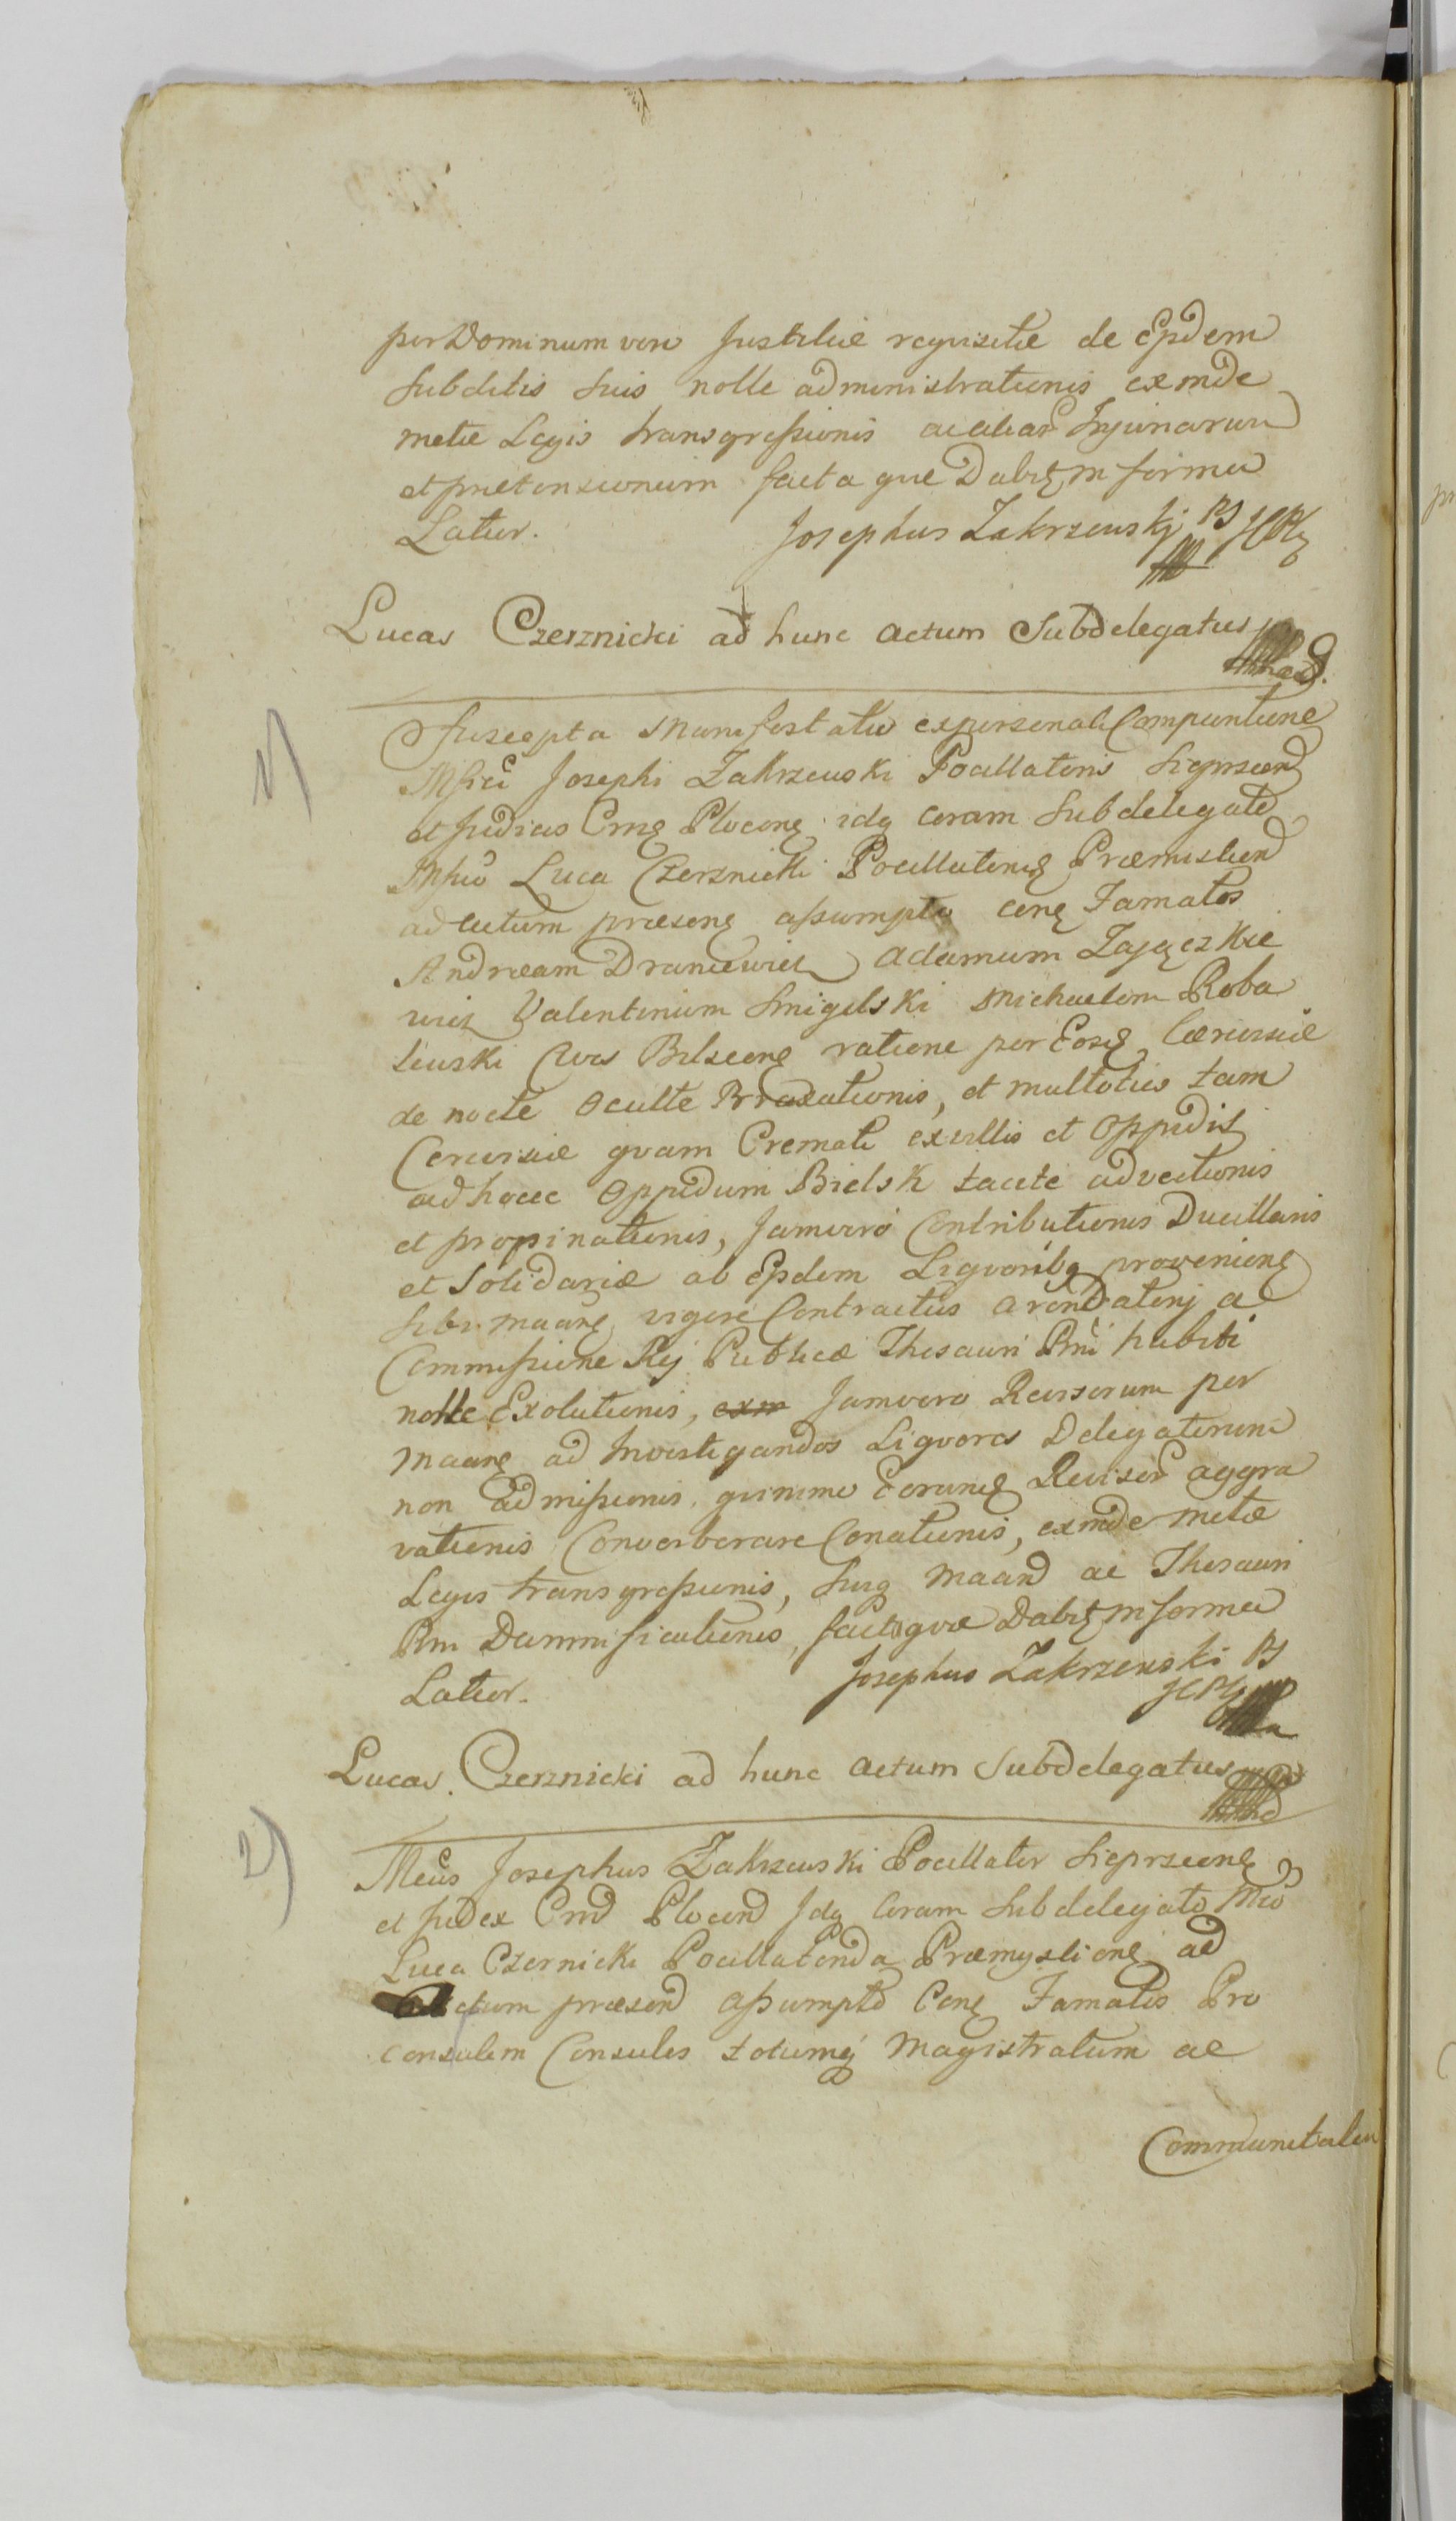 per Dominum vero Justitiæ requisitæ de Epdem
subditis suis nolle administrationis exinde
metæ Legis transgressionis ac aliar Injuriarum
et prætensionum factaque Dabit in forma
Latior.
Josephus Zakrzewskj PS JCPł
Lucas Czerznicki ad hunc actum Subdelegatus
1)
Suscepta Manifestatio ex personali Comparitione
Mfici Josephi Zakrzewski Pocillatoris Sieprscen
et Judicis Crns Plocens idq coram Subdelegato
Mfico Luca Czerznicki Pocillatoris Præmislien
ad actum præsens assumpto cons Famatos
Andræam Draniewicz Adamum Zajączkie
wicz Valentinum Smigelski Michaelem Roba
Cives Bilscens ratione per Eosd Cerevisiæ
de nocte occulte Braxationis, et multoties tam
Cerevisiæ quam Cremati ex villis et Oppidis
ad hocce Oppidum Bielsk tacite advectionis
et propinationis, Jamvero Contributionis Ducillaris
et Solidariæ ab Epdem Liquoribq proveniens
sibi maans vigore Contractus arendatorij a
Commissione Rej Publicæ Thesauri Rni habiti
nolle Exolutionis, exin Jamvero Revisorum per
maans ad Investigandos Liquores Delegatorum
non admissionis, quinimo Eorund Revisor aggra
vationis Converberare Conationis, exinde metæ
Legis transgressionis, suiq maand ac Thesauri
Rni Damnificationis, factaque Dabit in forma
Latior.
Josephus Zakrzewski PS
JCPł
Lucas Czerznicki ad hunc actum Subdelegatus
2)
Mcus Josephus Zakrzewski Pocillator Sieprscens
et Judex Crnd Plocend Idq Coram Subdelegato Mco
Luca Czernicki Pocillatorida Præmysliens ad
actum præsend assumpto Cons Famatos Pro
consulem Consules totumq Magistratum ac
Communitatem